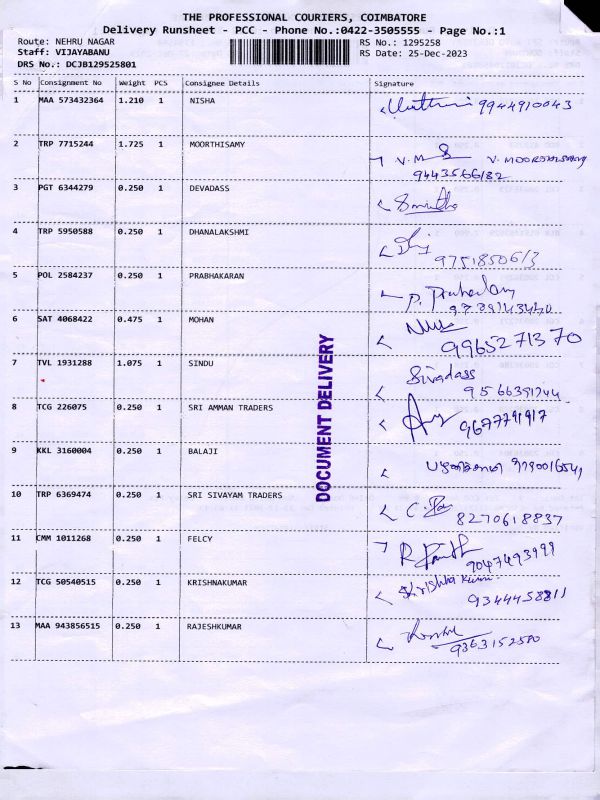 THE PROFESSIONAL COURIERS, COIMBATORE
Delivery Runsheet - PCC - Phone No.:0422-3505555 - Page No.:1
Route: NEHRU NAGAR RS No.: 1295258
Staff: VIJAYABANU RS Date: 25-Dec-2023
DRS No.: DCJB129525801
S No Consignment No Weight PCS Consignee Details Signature
1 MAA 573432364 1.210 1 NISHA 9944910043
2 TRP 7715244 1.725 1 MOORTHISAMY V.M
9443566182
3 PGT 6344279 0.250 1 DEVADASS
4 TRP 5950588 0.250 1 DHANALAKSHMI
9751850613
5 POL 2584237 0.250 1 PRABHAKARAN
6 SAT 4068422 0.475 1 MOHAN
9965271370
7 TVL 1931288 1.075 1 SINDU Sivadass
9566391744
8 TCG 226075 0.250 1 SRI AMMAN TRADERS
9677791917
9 KKL 3160004 0.250 1 BALAJI
10 TRP 6369474 0.250 1 SRI SIVAYAM TRADERS
8270618837
11 CMM 1011268 0.250 1 FELCY
9047493999
12 TCG 50540515 0.250 1 KRISHNAKUMAR
9344458811
13 MAA 943856515 0.250 1 RAJESHKUMAR
9363152580
DOCUMENT DELIVERY